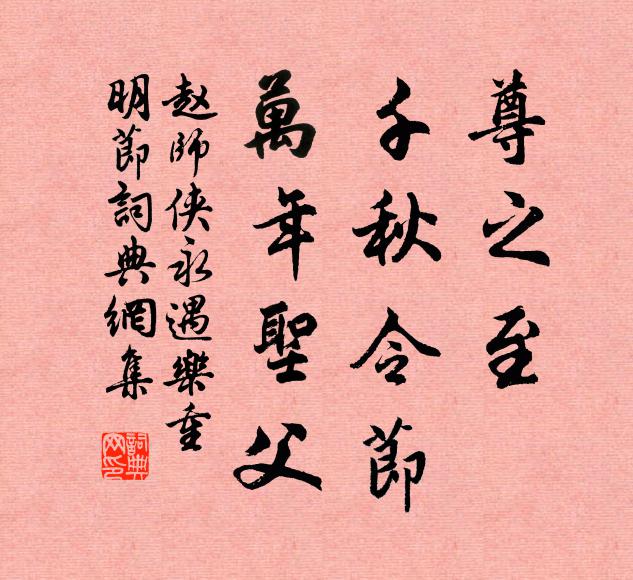 尊之至
千秋令節
萬年聖父
赵師侠永遇樂重
明節詞典網集
詞典
网印